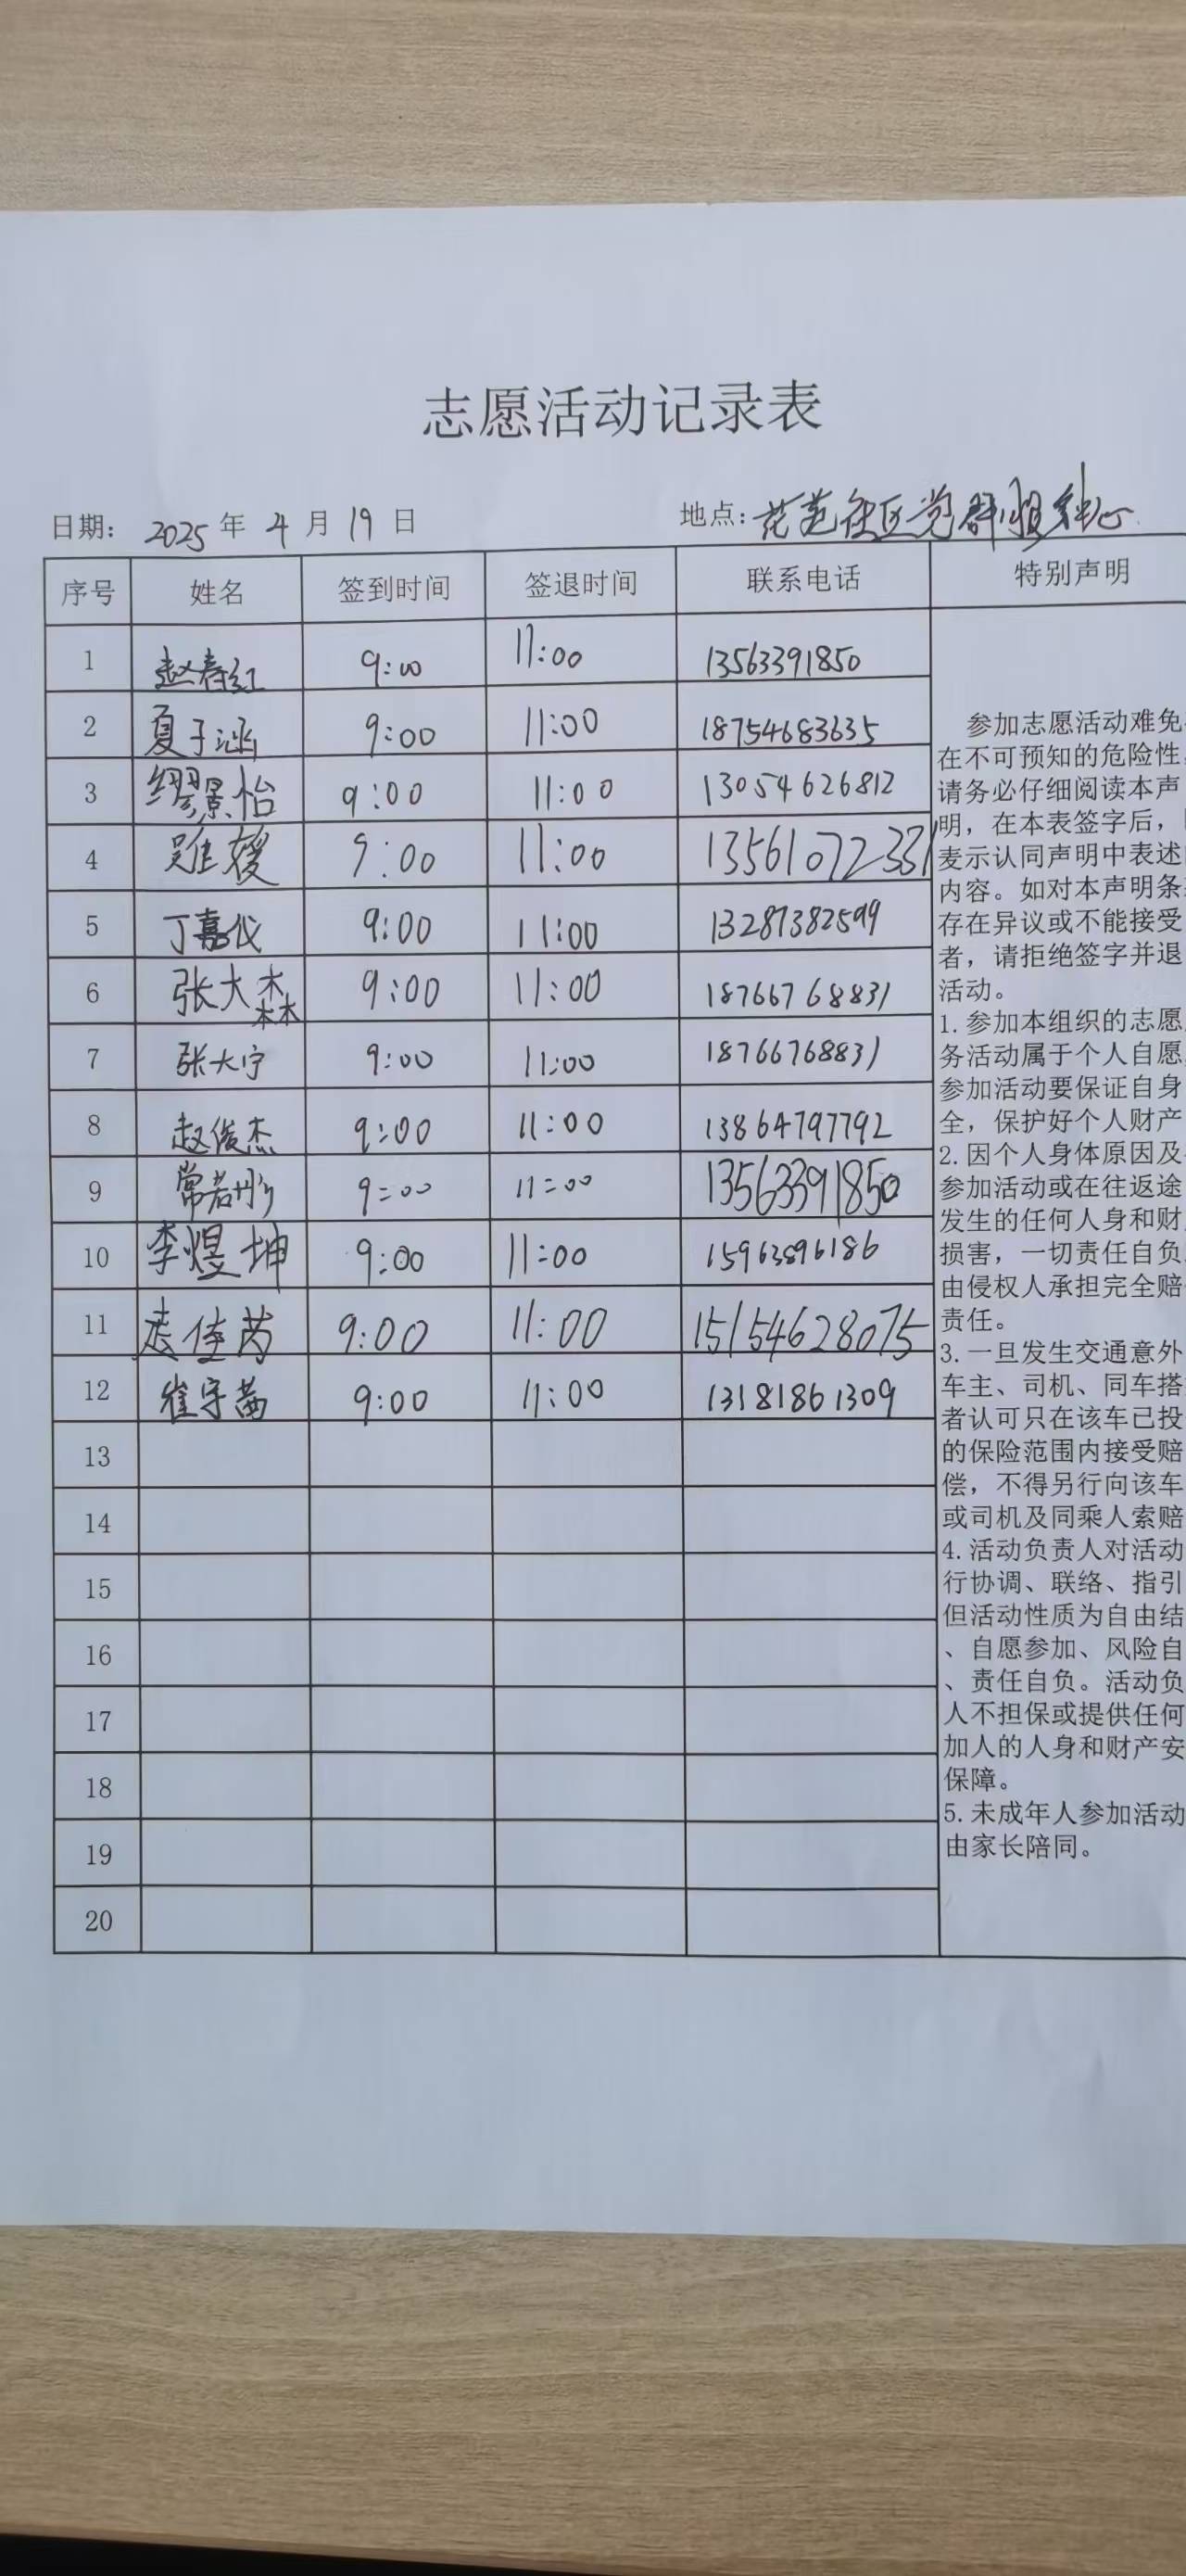 志愿活动记录表
日期: 2025 年 4 月 19 日 地点: 花苑社区党群服务中心
序号 姓名 签到时间 签退时间 联系电话 特别声明
1 赵春红 9:00 11:00 13563391850
2 夏子涵 9:00 11:00 18754683635
3 缪景怡 9:00 11:00 13054626812
4 9:00 11:00 13561072331
5 丁嘉仪 9:00 11:00 13287382599
6 张大森 9:00 11:00 18766768831
7 张大宁 9:00 11:00 18766768831
8 赵俊杰 9:00 11:00 13864797792
9 常若彤 9:00 11:00 13563391850
10 李煜坤 9:00 11:00 15963896186
11 佳芮 9:00 11:00 15154628075
12 崔宇茜 9:00 11:00 13181861309
13
14
15
16
17
18
19
20
参加志愿活动难免
在不可预知的危险性,
请务必仔细阅读本声
明，在本表签字后，
麦示认同声明中表述
内容。如对本声明条
存在异议或不能接受
者，请拒绝签字并退
活动。
1.参加本组织的志愿
务活动属于个人自愿
参加活动要保证自身
全，保护好个人财产
2.因个人身体原因及
参加活动或在往返途
发生的任何人身和财
损害，一切责任自负
由侵权人承担完全赔
责任。
3.一旦发生交通意外
车主、司机、同车搭
者认可只在该车已投
的保险范围内接受赔
偿，不得另行向该车
或司机及同乘人索赔
4.活动负责人对活动
行协调、联络、指引
但活动性质为自由结
、自愿参加、风险自
、责任自负。活动负
人不担保或提供任何
加人的人身和财产安
保障。
5.未成年人参加活动
由家长陪同。